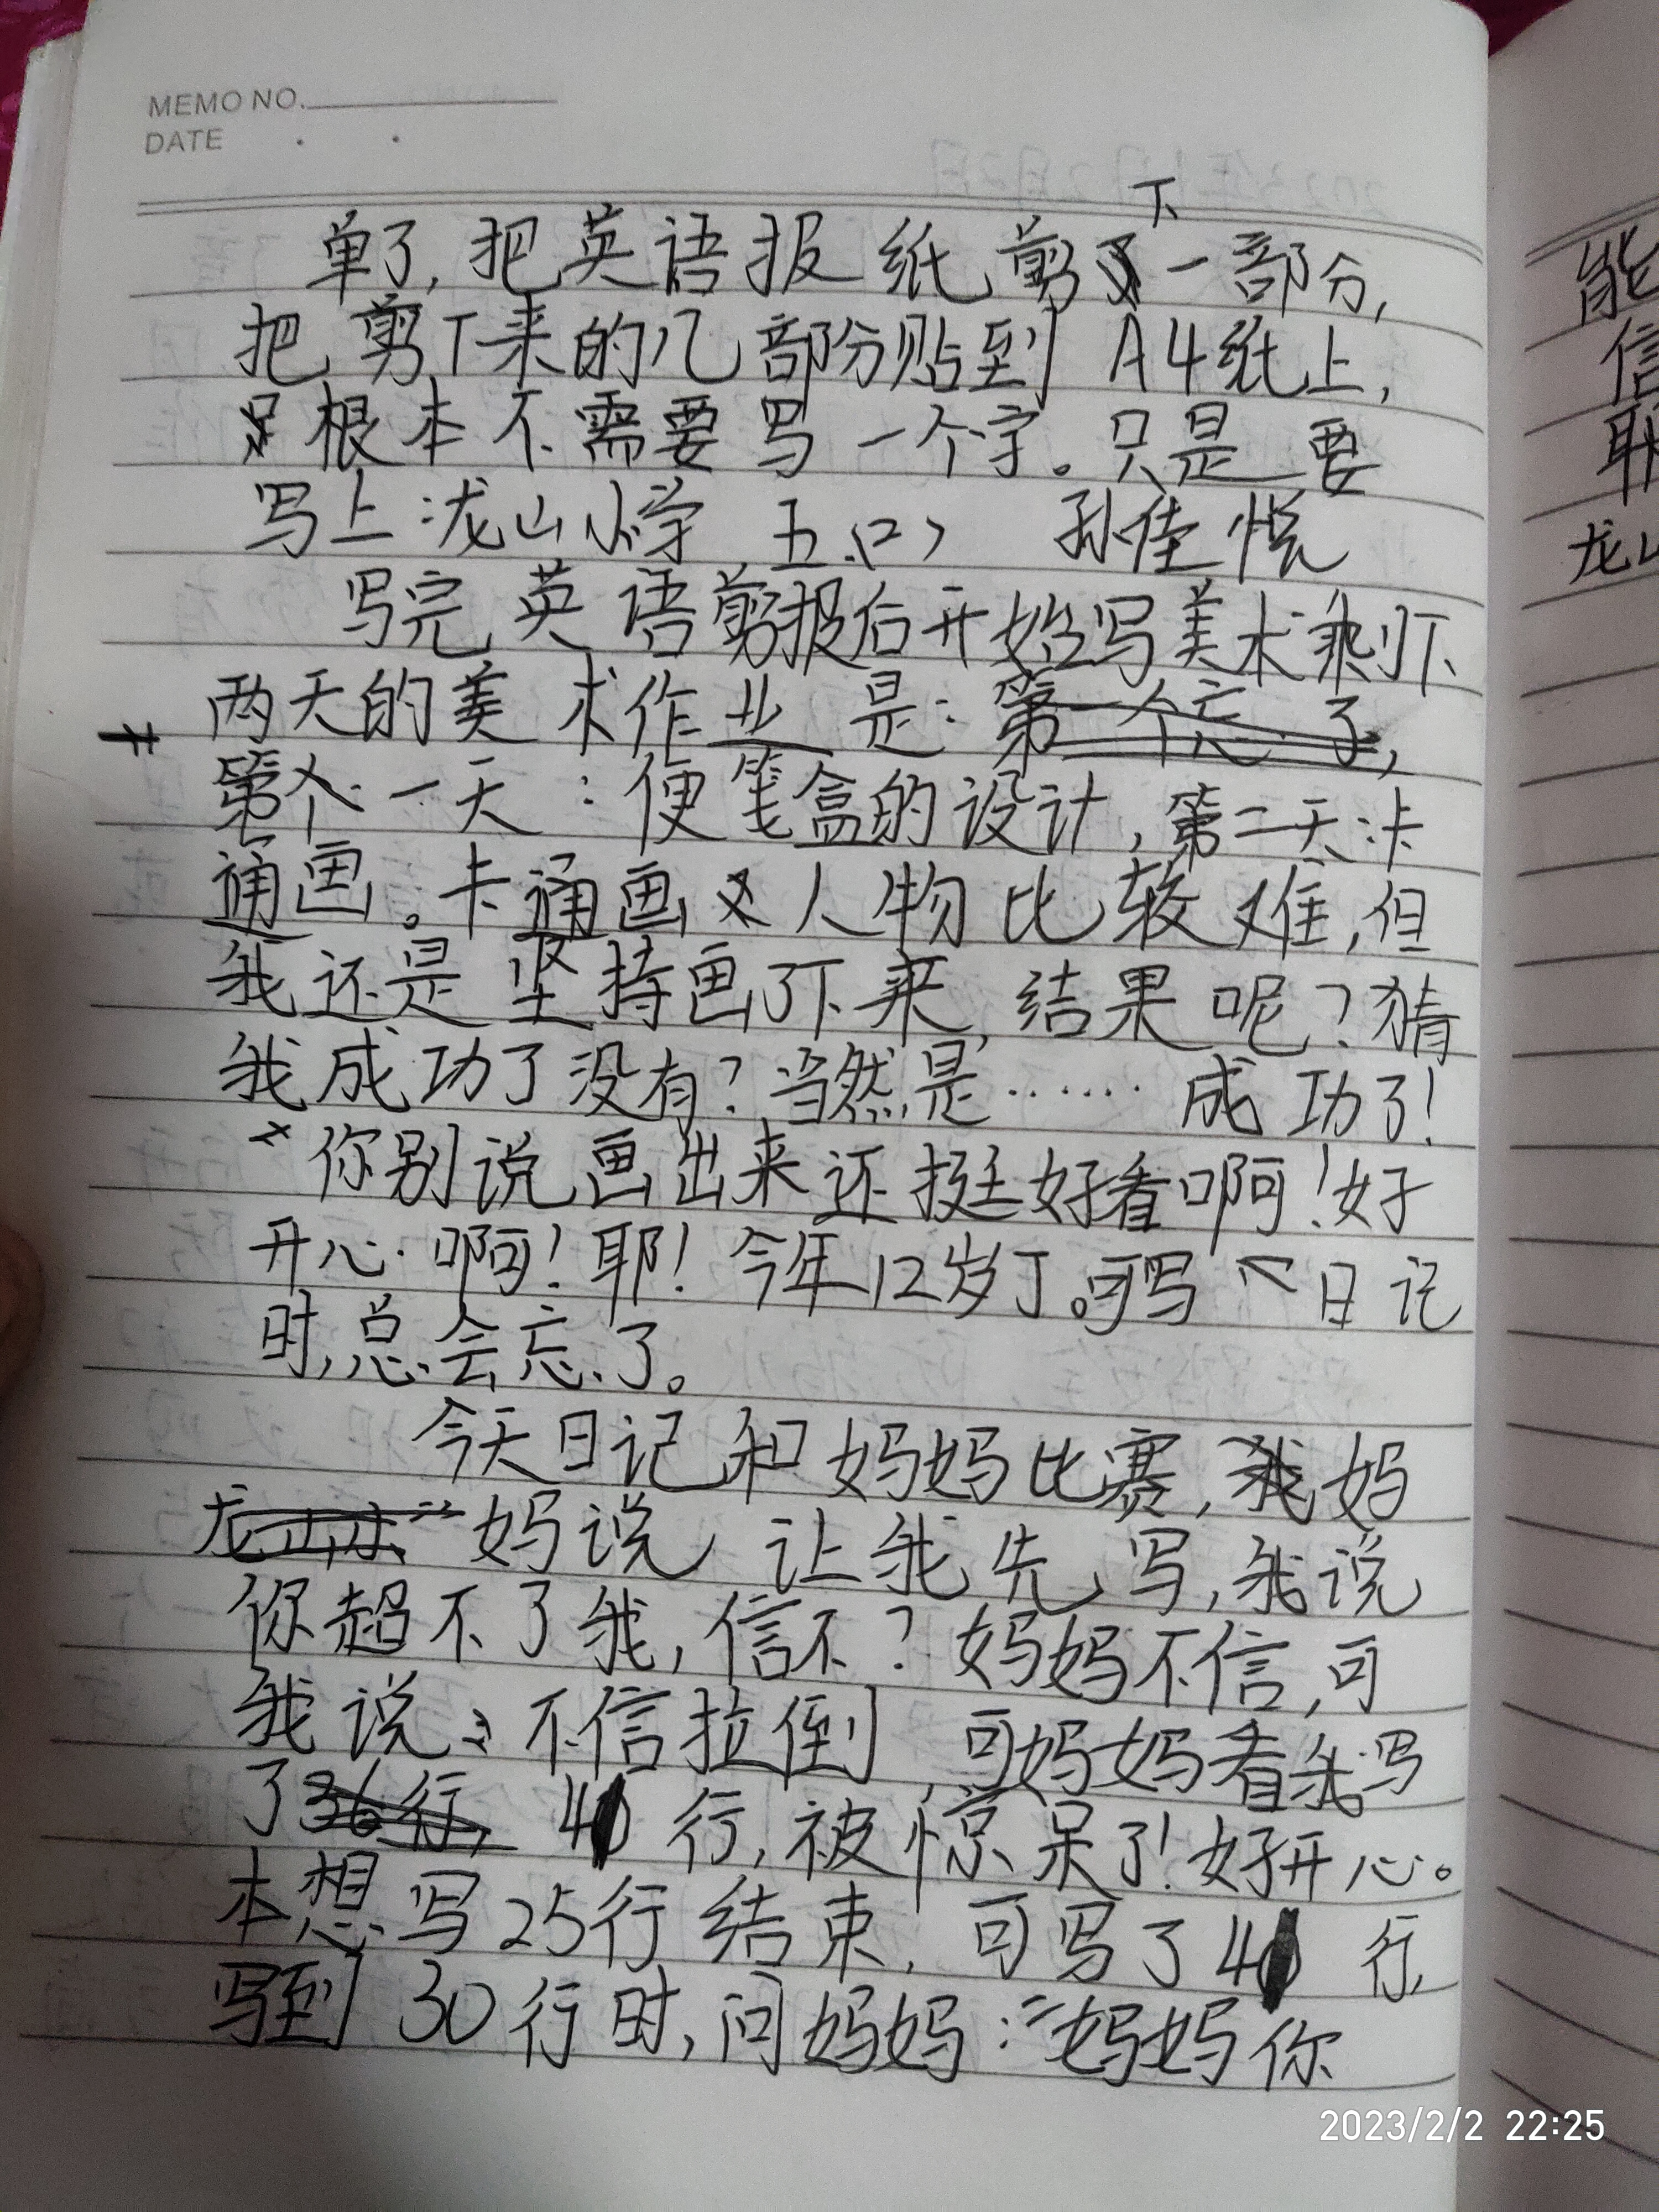 MEMO NO.
DATE
单了,把英语报纸剪下一部分,
把剪下来的几部份贴到A4纸上,
根本不需要写一个字。只是要
写上:泷山小学 五(2) 孙佳悦
写完英语剪报后开始写美术剩下
两天的美术作业是:
第一天:便笺盒的设计,第二天:卡
通画。卡通画人物比较难,但
我还是坚持画了下来,结果呢?猜
我成功了没有?当然是……成功了!
你别说画出来还挺好看啊!好
开心啊!耶!今年12岁了。可写日记
时,总会忘了。
今天日记和妈妈比赛,妈
妈说让我先写,我说
你超不了我,信不?妈妈不信,可
我说:不信拉倒,可妈妈看我写
了 行,被惊呆了!好开心。
本想写25行结束,可写了 行,
写到30行时,问妈妈:“妈妈你
能
信
耶
龙山
2023/2/2 22:25